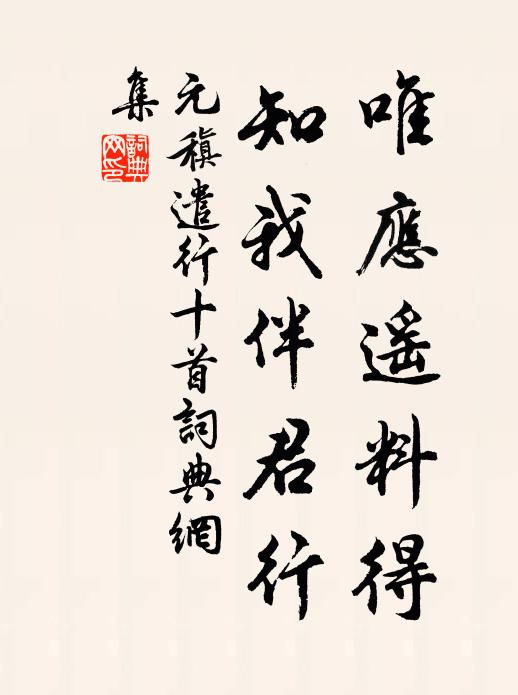 唯應遥料得
知我伴君行
元稹遣行十首詞典網
集
詞典
网印